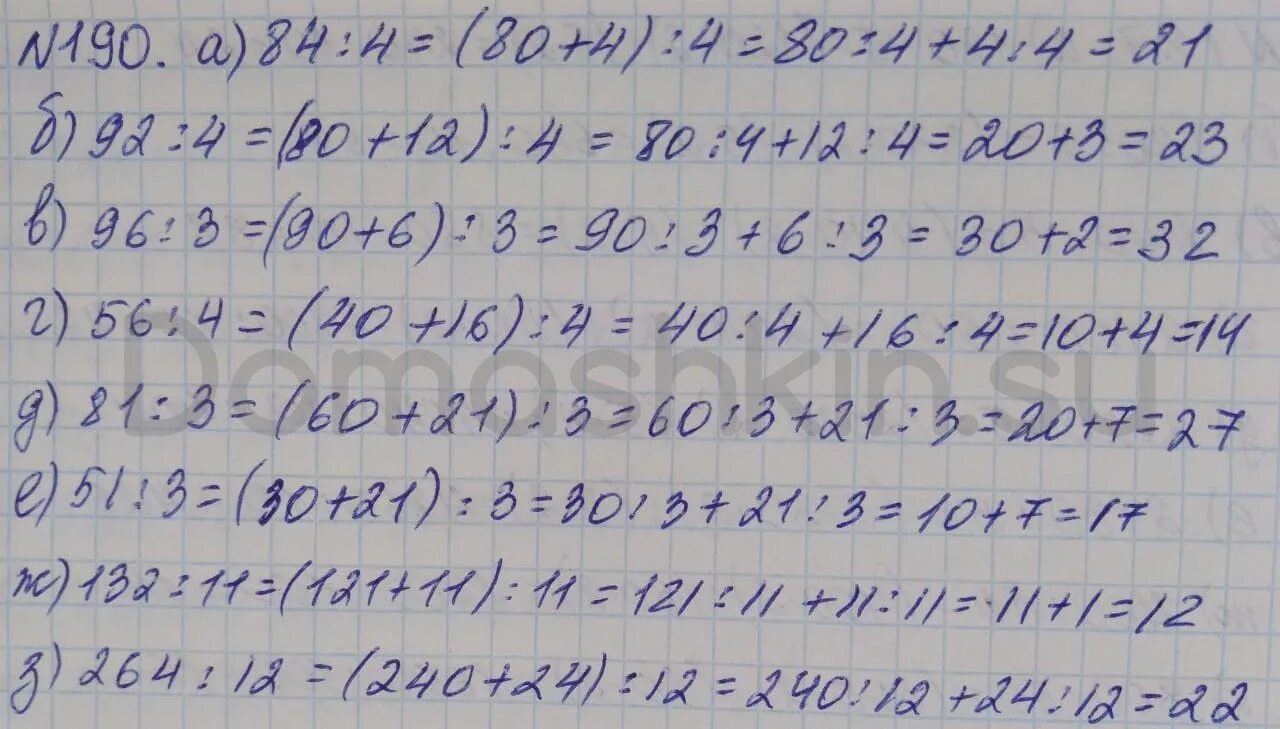 №190. а) 84:4=(80+4):4=80:4+4:4=21
б) 92:4=(80+12):4=80:4+12:4=20+3=23
в) 96:3=(90+6):3=90:3+6:3=30+2=32
г) 56:4=(40+16):4=40:4+16:4=10+4=14
Domoshkin.su
д) 81:3=(60+21):3=60:3+21:3=20+7=27
е) 51:3=(30+21):3=30:3+21:3=10+7=17
ж) 132:11=(121+11):11=121:11+11:11=11+1=12
з) 264:12=(240+24):12=240:12+24:12=22